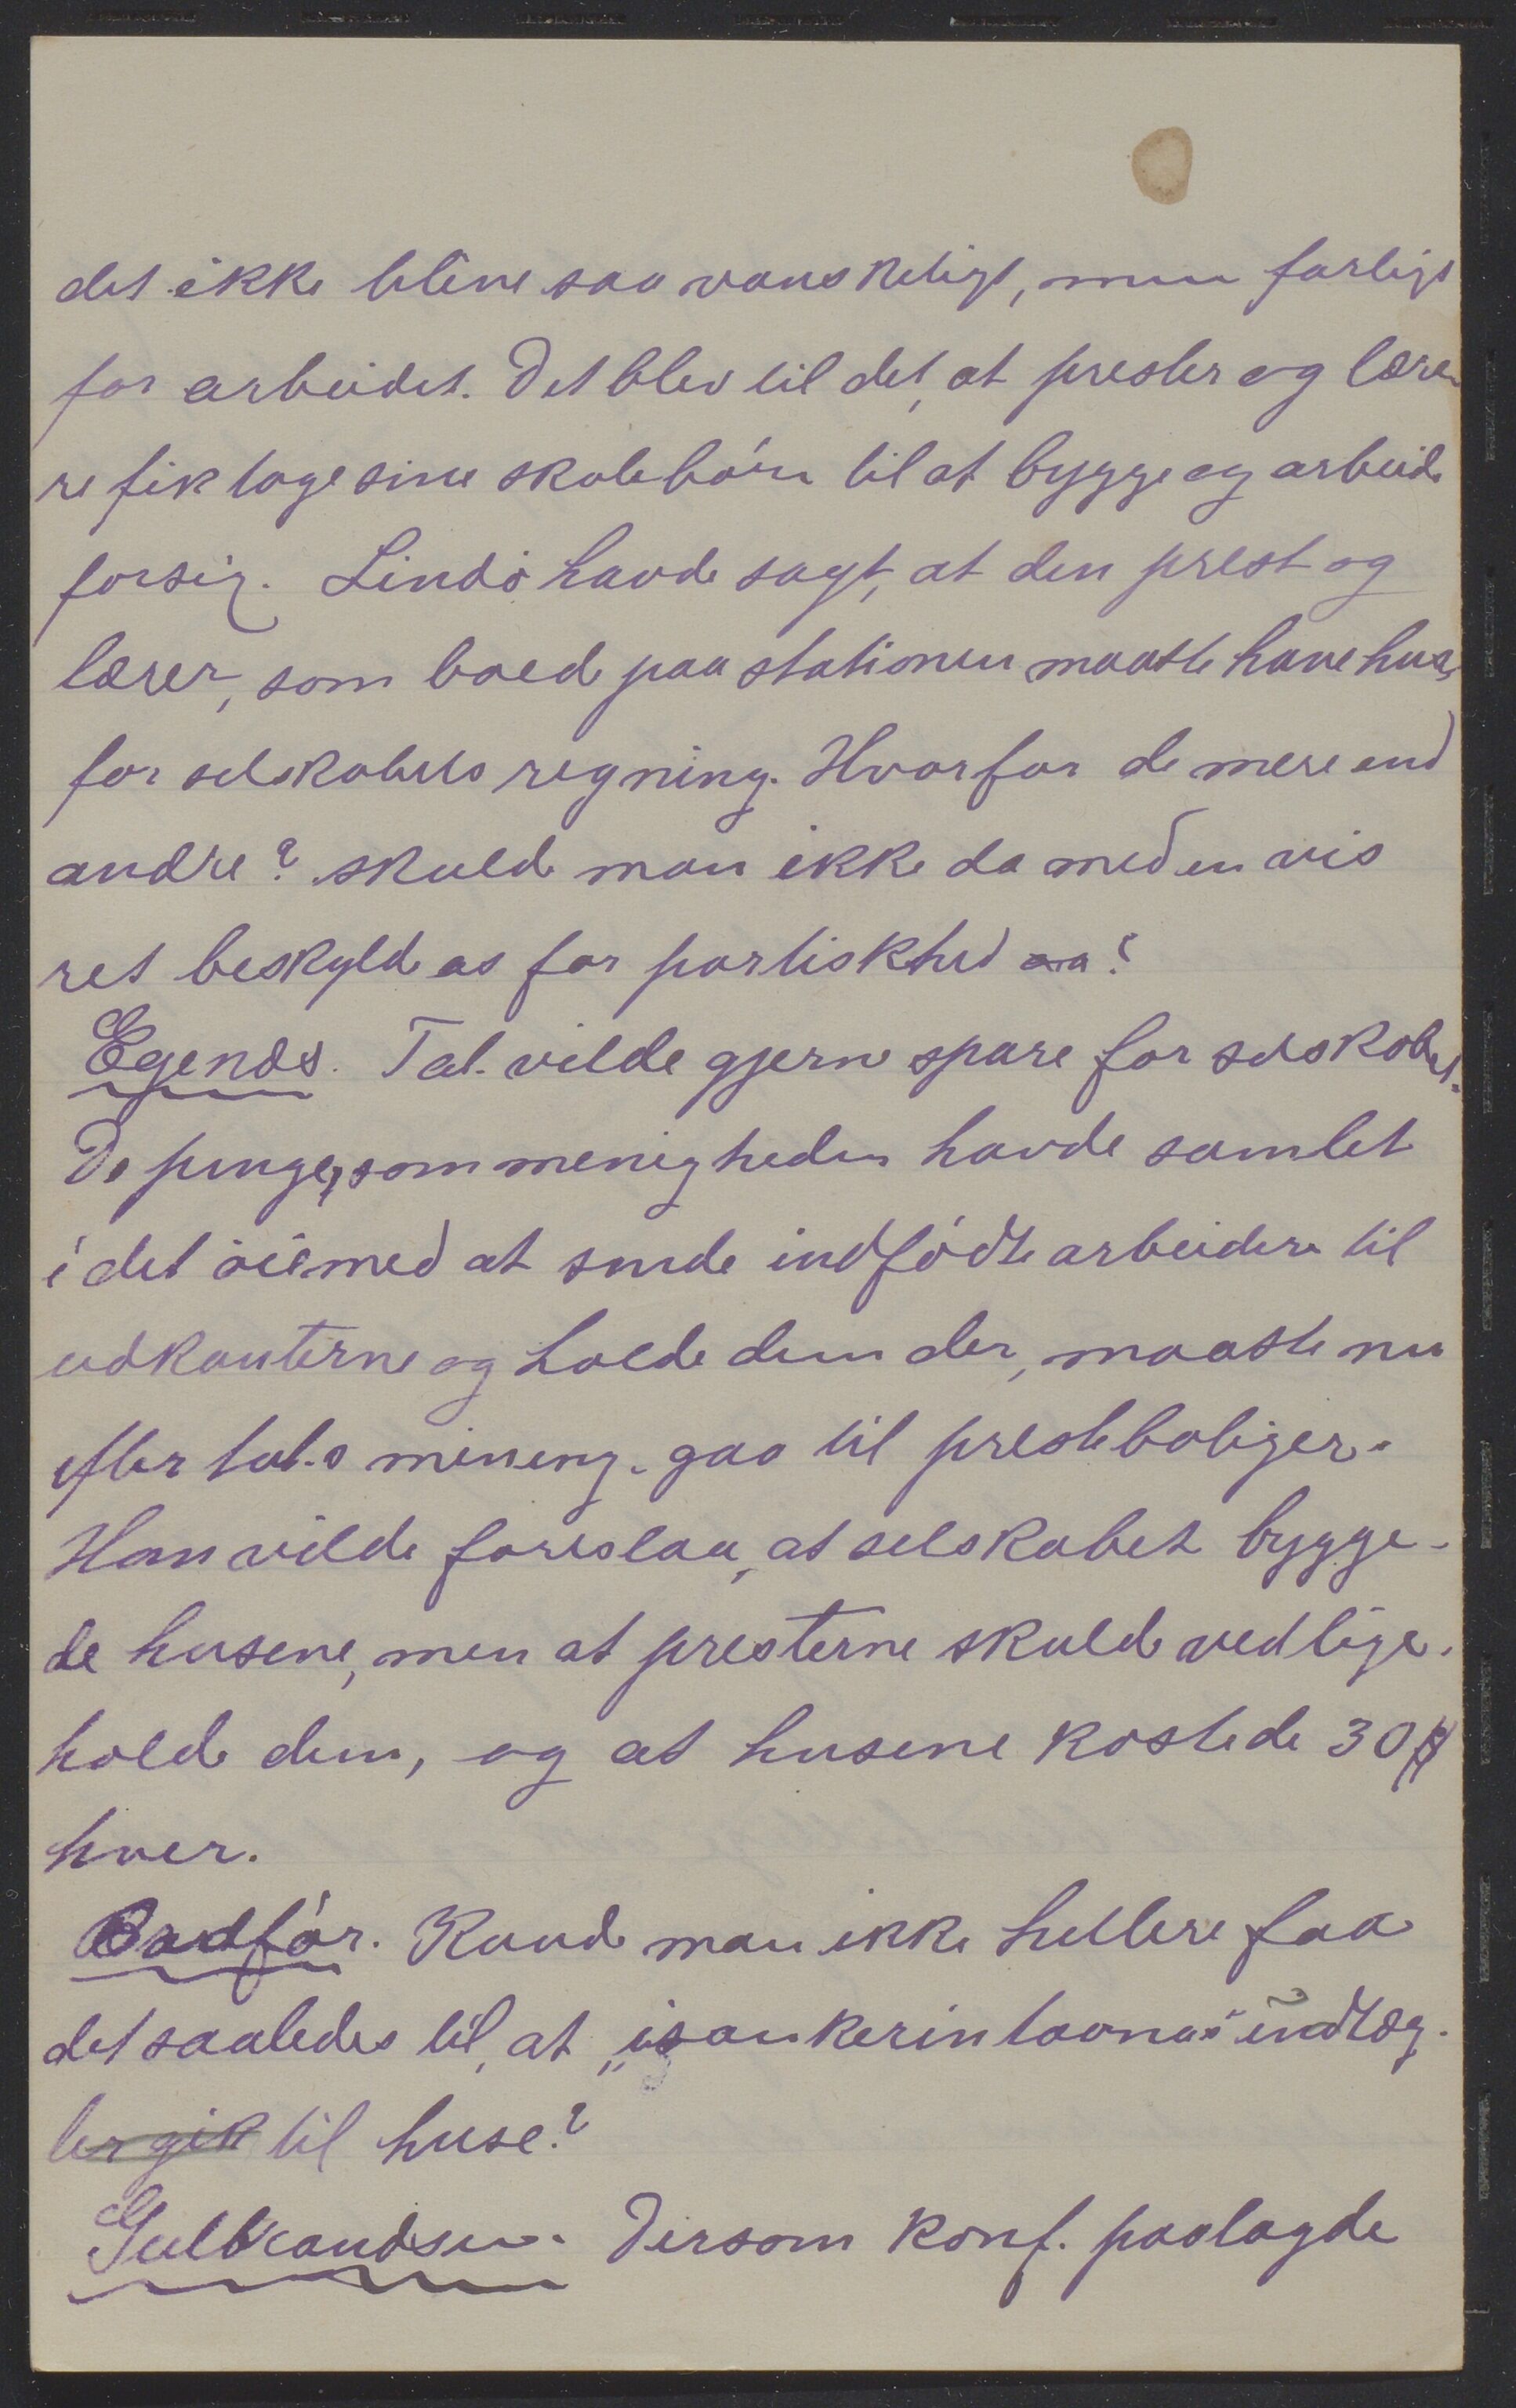 det ikke blive saa vanskeligt, men farligt
for arbeidet. Det blev til det, at prester og lære
re fik tage sine skolebørn til at bygge og arbeide
for sig. Lindø havde sagt, at den prest og
lærer, som boede paa stationen maatte have hus
for selskabets regning. Hvorfor de mere end
andre? skulde man ikke da med en vis
ret beskylde os for partiskhed?
Egenæs. Tal. vilde gjerne spare for selskabet.
De penge, som menigheden havde samlet
i det øiemed at sende indfødte arbeidere til
udkanterne og holde dem der, maatte nu
efter tal.s mening gaa til presteboliger.
Han vilde foreslaa, at selskabet bygge-
de husene, men at presterne skulde vedlige-
holde dem, og at husene kostede 30
hver.
Bordfør. Kunde man ikke hellere faa
det saaledes til, at „isankerintaona" indtæg-
ter gik til huse?
Gulbrandsen. Dersom konf. paalagde